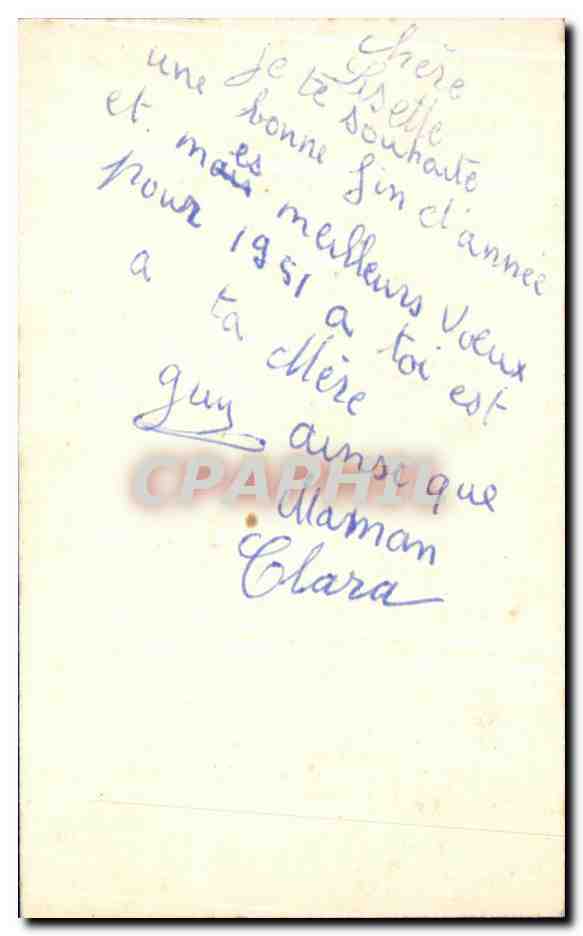 Chère
Lisette
Je te souhaite
une bonne fin d'année
et mes meilleurs Vœux
pour 1951 a toi est
a ta Mère
guy ainsi que
Maman
Clara
CPAPHIL